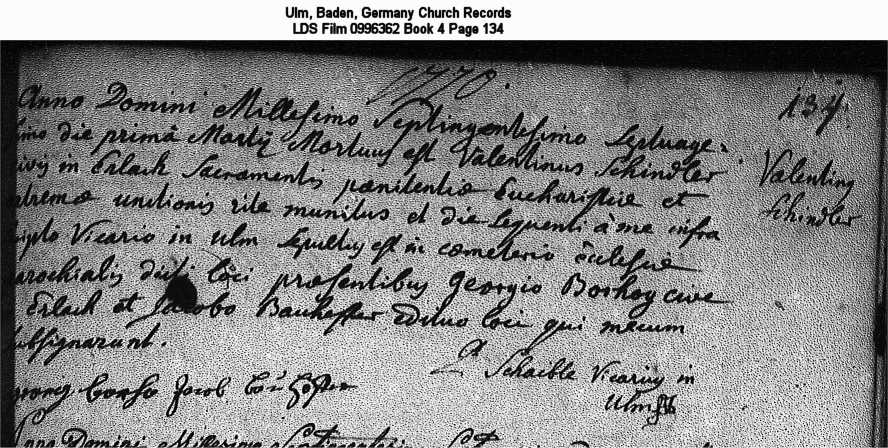 Ulm, Baden, Germany Church Records
LDS Film 0996362 Book 4 Page 134
1770.
134.
Anno Domini Millesimo Septingentesimo Septuage=
simo die primâ Martÿ Mortuus est Valentinus Schindler
civis in Erlach Sacramentis pœnitentiæ Eucharistiæ et
extremæ unctionis rite munitus et die sequenti à me infra
scripto Vicario in Ulm sepultus est in cœmeterio Ecclesiæ
parochialis dicti loci præsentibus Georgio Borhog cive
Erlach et Jacobo Bauhoffer Ædituo loci qui mecum
subsignarunt.
Valentinus
Schindler
Schaible Vicarius in
Ulm
georg Jacob
Anno Domini Millesimo